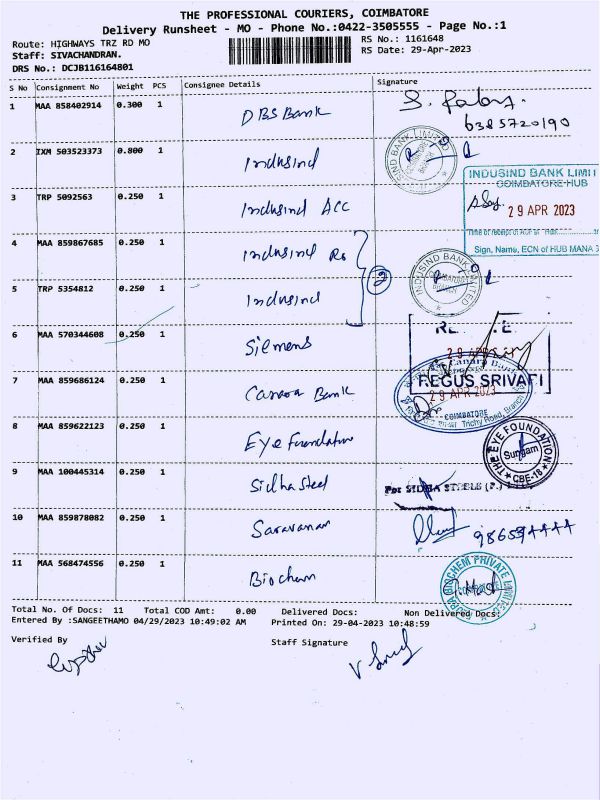 THE PROFESSIONAL COURIERS, COIMBATORE
Delivery Runsheet - MO - Phone No.:0422-3505555 - Page No.:1
Route: HIGHWAYS TRZ RD MO
RS No.: 1161648
Staff: SIVACHANDRAN.
RS Date: 29-Apr-2023
DRS No.: DCJB116164801
S No Consignment No Weight PCS Consignee Details Signature
1 MAA 858402914 0.300 1 DBS Bank
6385720190
2 IXM 503523373 0.800 1 Indusind
INDUSIND BANK LIMITED
INDUSIND BANK LIMIT
COIMBATORE-HUB
3 TRP 5092563 0.250 1 Indusind ACC
29 APR 2023
Sign, Name, ECN of HUB MANA
4 MAA 859867685 0.250 1 Indusind Ro
2
5 TRP 5354812 0.250 1 Indusind
INDUSIND BANK LIMITED
6 MAA 570344608 0.250 1 Siemens
REGUS SRIVARI
7 MAA 859686124 0.250 1 Canara Bank
Canara Bank
29 APR 2023
COIMBATORE
Trichy Road, Branch
8 MAA 859622123 0.250 1 Eye Foundation
THE EYE FOUNDATION
Sungam
CBE-18
9 MAA 100445314 0.250 1 Sidha Steel
For SIDHA STEELS (P.)
10 MAA 859878082 0.250 1 Saravanan
11 MAA 568474556 1 Biochem
0.250
BIOCHEM PRIVATE LIMITED
Total No. Of Docs: 11 Total COD Amt: 0.00 Delivered Docs: Non Delivered Docs:
Entered By :SANGEETHAMO 04/29/2023 10:49:02 AM Printed On: 29-04-2023 10:48:59
Verified By Staff Signature